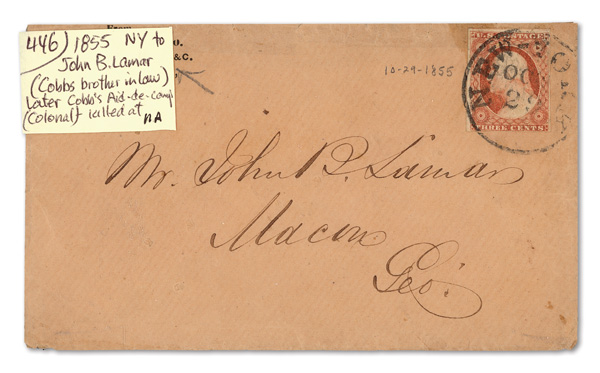 From
&C.
446) 1855 NY to
John B. Lamar
(Cobbs brother in law)
Later Cobb's Aid-de-camp
(Colonal) - killed at
NA
10-29-1855
U.S. POSTAGE
THREE CENTS
NEW-YORK
OCT
29
Mr. John B. Lamar
Macon
Geo.